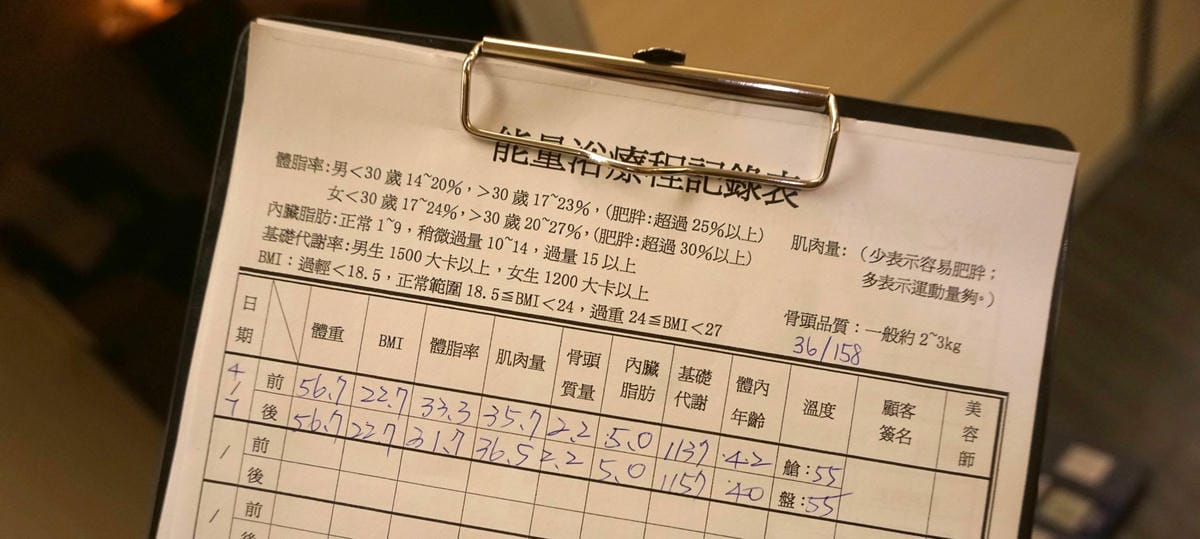 能量浴療程記錄表
體脂率:男<30 歲 14~20%,>30 歲 17~23%,(肥胖:超過 25%以上)
女<30 歲 17~24%,>30 歲 20~27%,(肥胖:超過 30%以上)
內臟脂肪:正常 1~9,稍微過量 10~14,過量 15 以上
基礎代謝率:男生 1500 大卡以上,女生 1200 大卡以上
BMI:過輕<18.5,正常範圍 18.5≦BMI<24,過重 24≦BMI<27
肌肉量:(少表示容易肥胖;
多表示運動量夠。)
骨頭品質:一般約 2~3kg
36/158
日期 體重 BMI 體脂率 肌肉量 骨頭質量 內臟脂肪 基礎代謝 體內年齡 溫度 顧客簽名 美容師
4/7 前 56.7 22.7 33.3 35.7 2.2 5.0 1137 42 艙:55
後 56.7 22.7 31.7 36.5 2.2 5.0 1157 40 盤:55
/ 前
後
/ 前
後